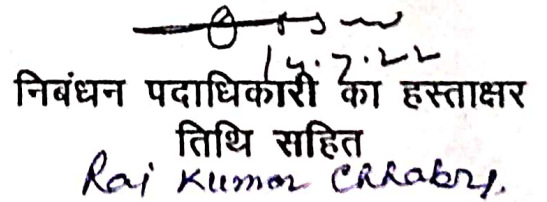 14.7.22
निबंधन पदाधिकारी का हस्ताक्षर
तिथि सहित
Raj Kumar